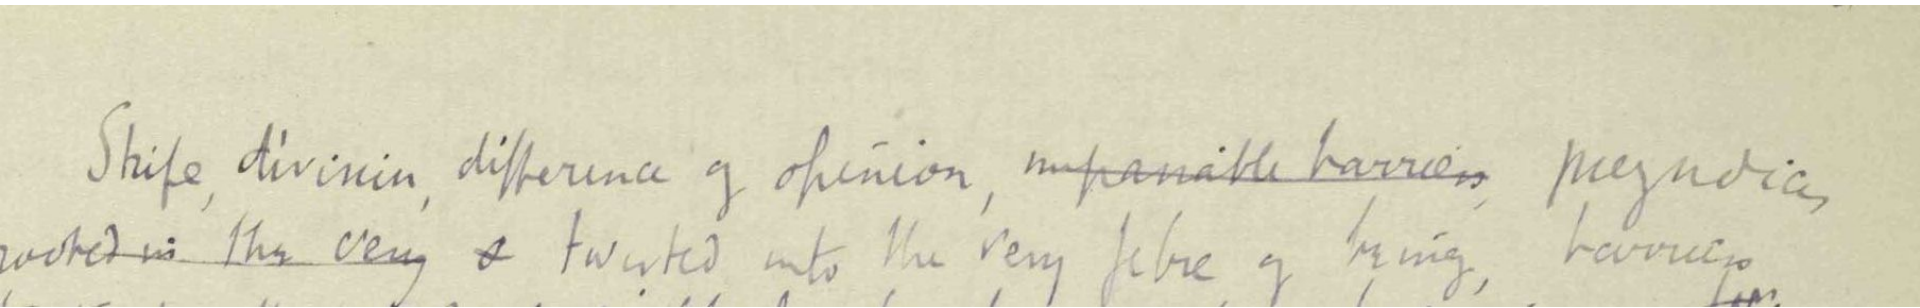 Strife, division, difference of opinion, impassable barriers, prejudices
rooted in the very & twisted into the very fibre of being, barriers